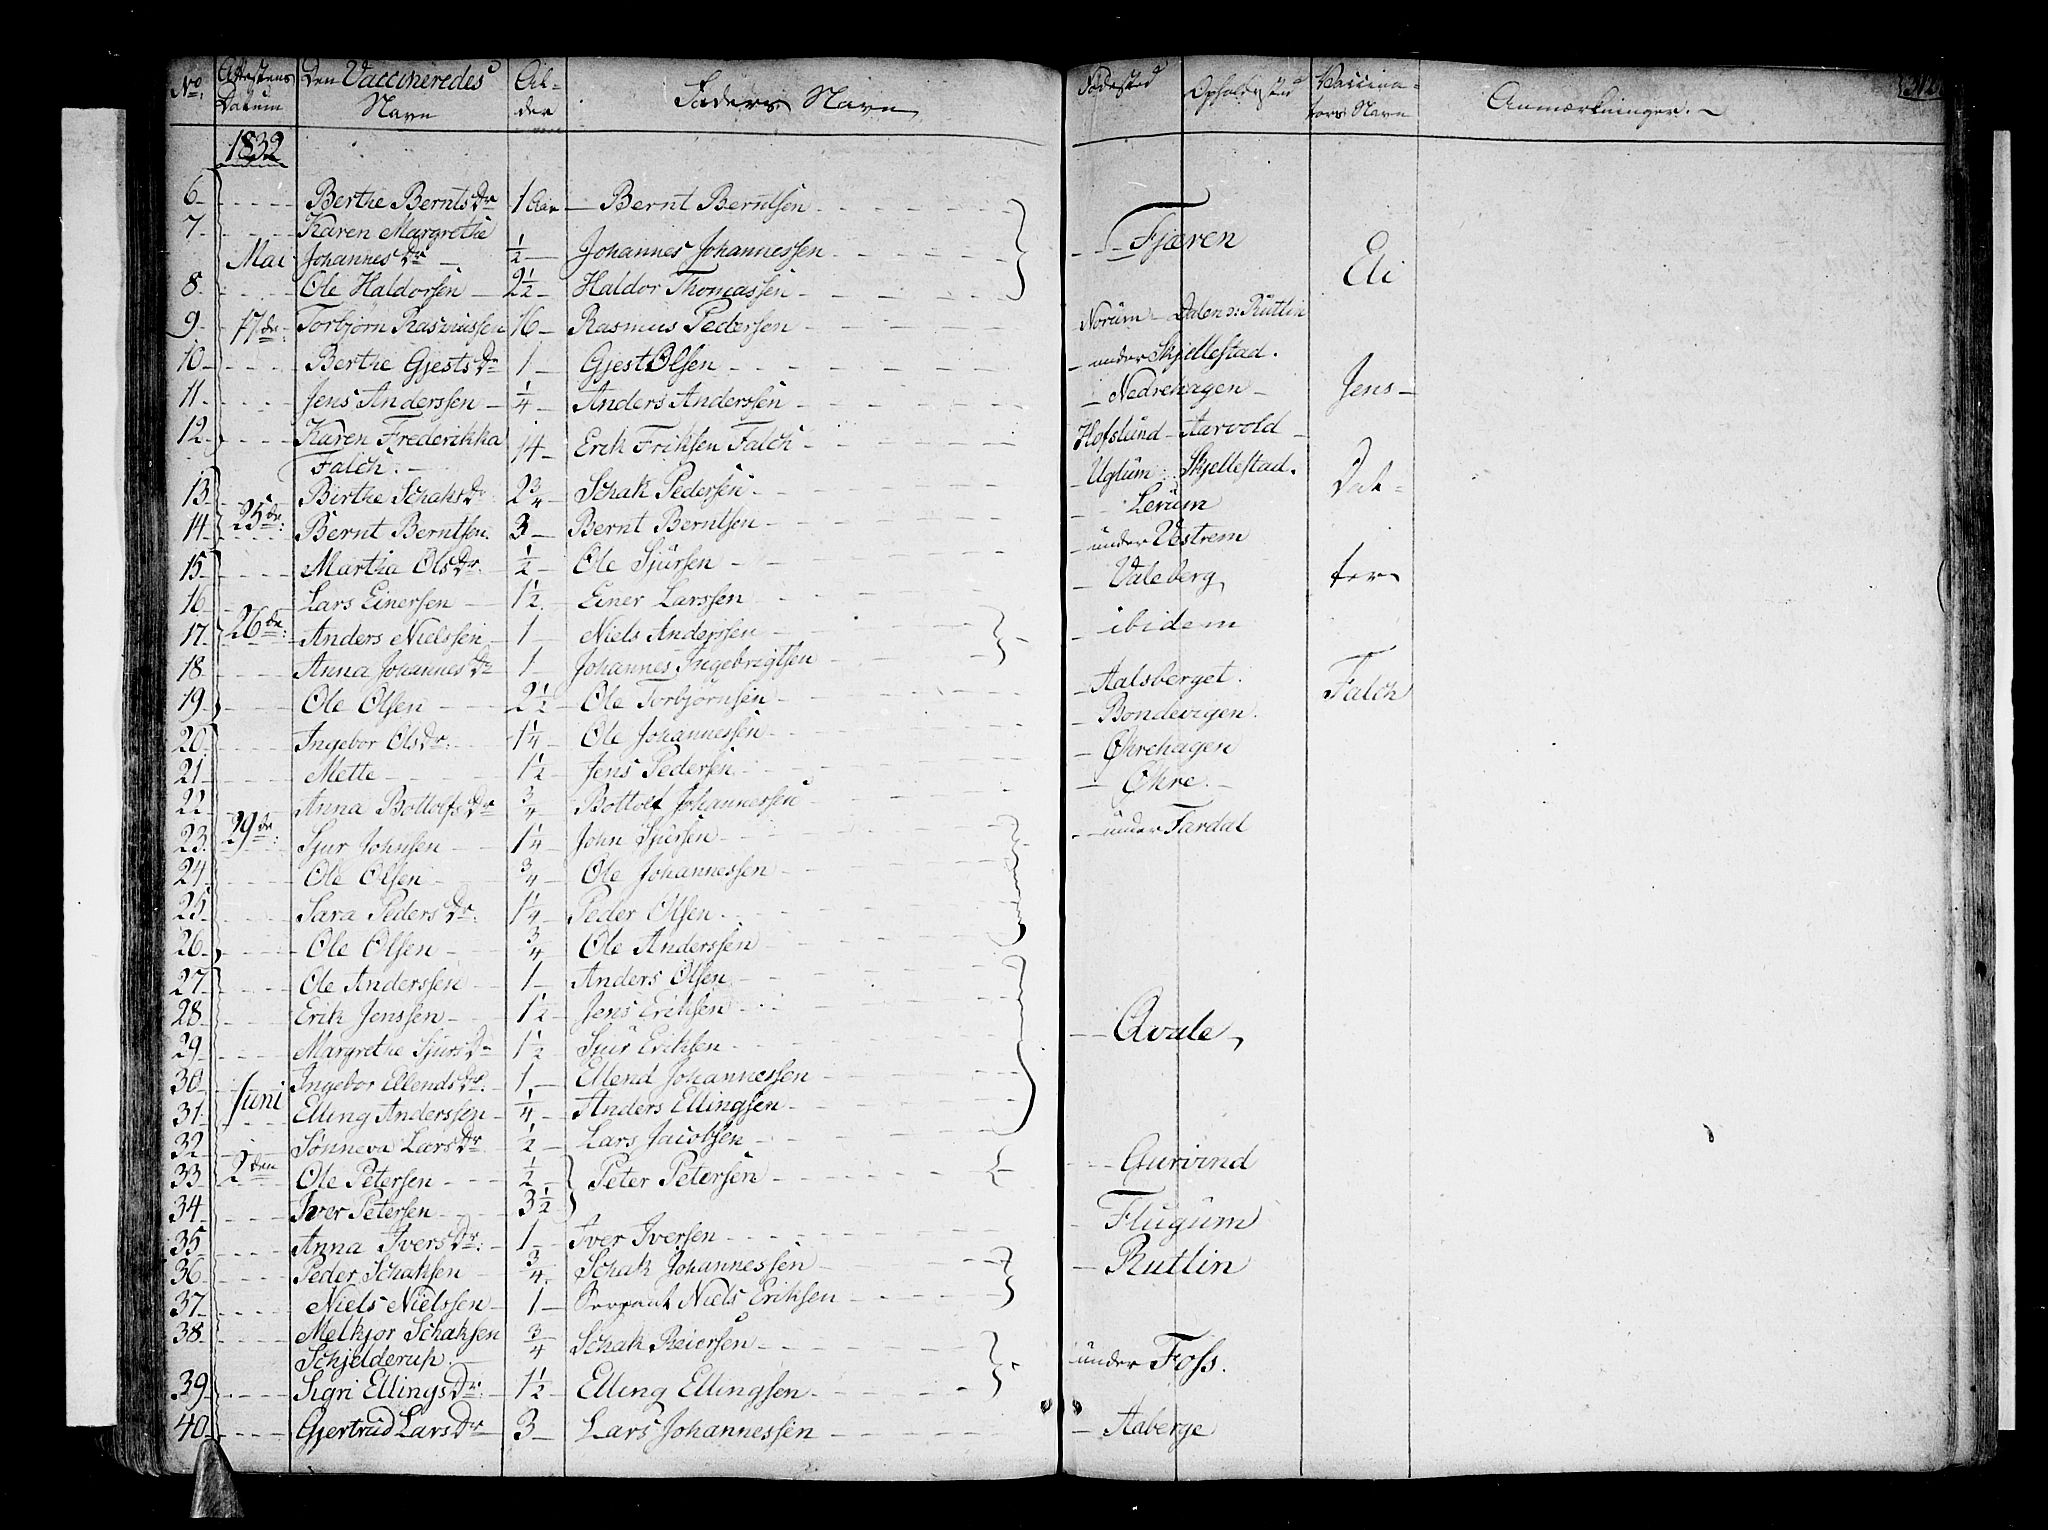 No. Attestens Datum Den Vaccineredes Navn Al-der Faders Navn Fødested Opholdssted Vaccina-tors Navn Anmærkninger.
1832
6 Berthe Bernts Dr 1 Aar Bernt Berntsen
7 Karen Margrethe
Mai Johannes Dr 1/2 Johannes Johannessen Fjæren Eli
8 Ole Haldorsen 2 1/2 Haldor Thomassen
9 17de Torbjørn Rasmussen 16 Rasmus Pedersen Norum Dalen Rutlin
10 Berthe Gjests Dr 1 Gjest Olsen under Skjellestad.
11 Jens Anderssen 1/4 Anders Anderssen Nedrehagen Jens
12 Karen Frederikka 14 Erik Friksen Falch Hofslund Aarvold
Falch.
13 Birthe Schaks Dr 2 3/4 Schak Pedersen Uglum Skjellestad. Dat-
14 25de Bernt Berntsen 3 Bernt Berntsen Lerum
15 Martha Ols Dr 1/2 Ole Sjursen under Vestrem
16 Lars Einersen 1 1/2 Einer Larssen Valeberg ter
17 26de Anders Nielssen 1 Niels Anderssen ibidem
18 Anna Johannes Dr 1 Johannes Ingebrigtsen Aalsberget. Falch
19 Ole Olsen 2 1/2 Ole Torbjørnsen Bondevigen.
20 Ingebor Ols Dr 1 1/4 Ole Johannessen Øhrehagen
21 Mette 1 1/2 Jens Pedersen Øhre.
22 Anna Bottolfs Dr 3/4 Bottolf Johannessen under Fardal
23 29de Sjur Johnsen 1 1/4 John Sjursen
24 Ole Olsen 3/4 Ole Johannessen
25 Sara Peders Dr 1 1/4 Peder Olsen
26 Ole Olsen 3/4 Ole Anderssen
27 Ole Anderssen 1 Anders Olsen
28 Erik Jenssen 1 1/2 Jens Eriksen
29 Margrethe Sjurs Dr 1 1/2 Sjur Eriksen Qvale
30 Ingebor Ellends Dr 1 Ellend Johannessen
31 Juni Elling Anderssen 1/4 Anders Ellingsen
32 Sønneva Lars Dr 1/2 Lars Jacobsen
33 2den Ole Petersen 1/2 Peter Petersen Gurvind
34 Iver Petersen 3 1/2 Flugum
35 Anna Ivers Dr 1 Iver Iversen
36 Peder Schaksen 3/4 Schak Johannessen Rutlin
37 Niels Nielssen 1 Sergeant Niels Eriksen
38 Melkjor Schaksen 3/4 Schak Reiersen under Foss.
Schjelderup.
39 Sigri Ellings Dr 1 1/2 Elling Ellingsen
40 Gjertrud Lars Dr 3 Lars Johannessen Aaberge